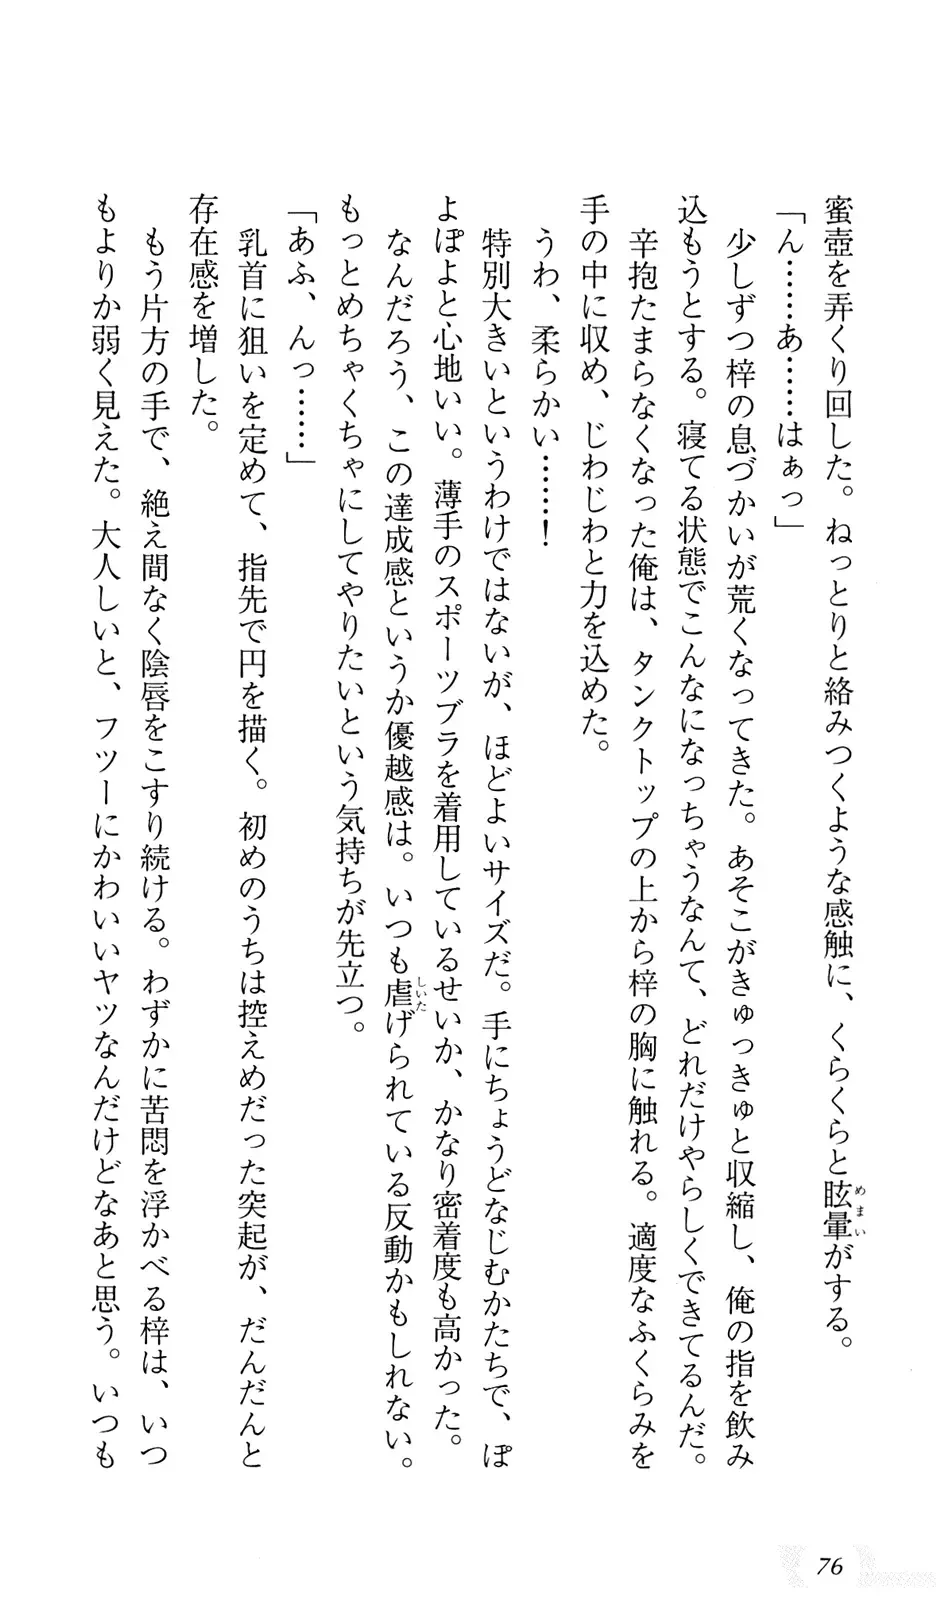 蜜壺を弄くり回した。ねっとりと絡みつくような感触に、くらくらと眩暈がする。
「ん……あ……はぁっ」
少しずつ梓の息づかいが荒くなってきた。あそこがきゅっきゅと収縮し、俺の指を飲み
込もうとする。寝てる状態でこんなになっちゃうなんて、どれだけやらしくできてるんだ。
辛抱たまらなくなった俺は、タンクトップの上から梓の胸に触れる。適度なふくらみを
手の中に収め、じわじわと力を込めた。
うわ、柔らかい……！
特別大きいというわけではないが、ほどよいサイズだ。手にちょうどなじむかたちで、ぽ
よぽよと心地いい。薄手のスポーツブラを着用しているせいか、かなり密着度も高かった。
なんだろう、この達成感というか優越感は。いつも虐げられている反動かもしれない。
もっとめちゃくちゃにしてやりたいという気持ちが先立つ。
「あふ、んっ……」
乳首に狙いを定めて、指先で円を描く。初めのうちは控えめだった突起が、だんだんと
存在感を増した。
もう片方の手で、絶え間なく陰唇をこすり続ける。わずかに苦悶を浮かべる梓は、いつ
もよりか弱く見えた。大人しいと、フツーにかわいいヤツなんだけどなあと思う。いつも
76